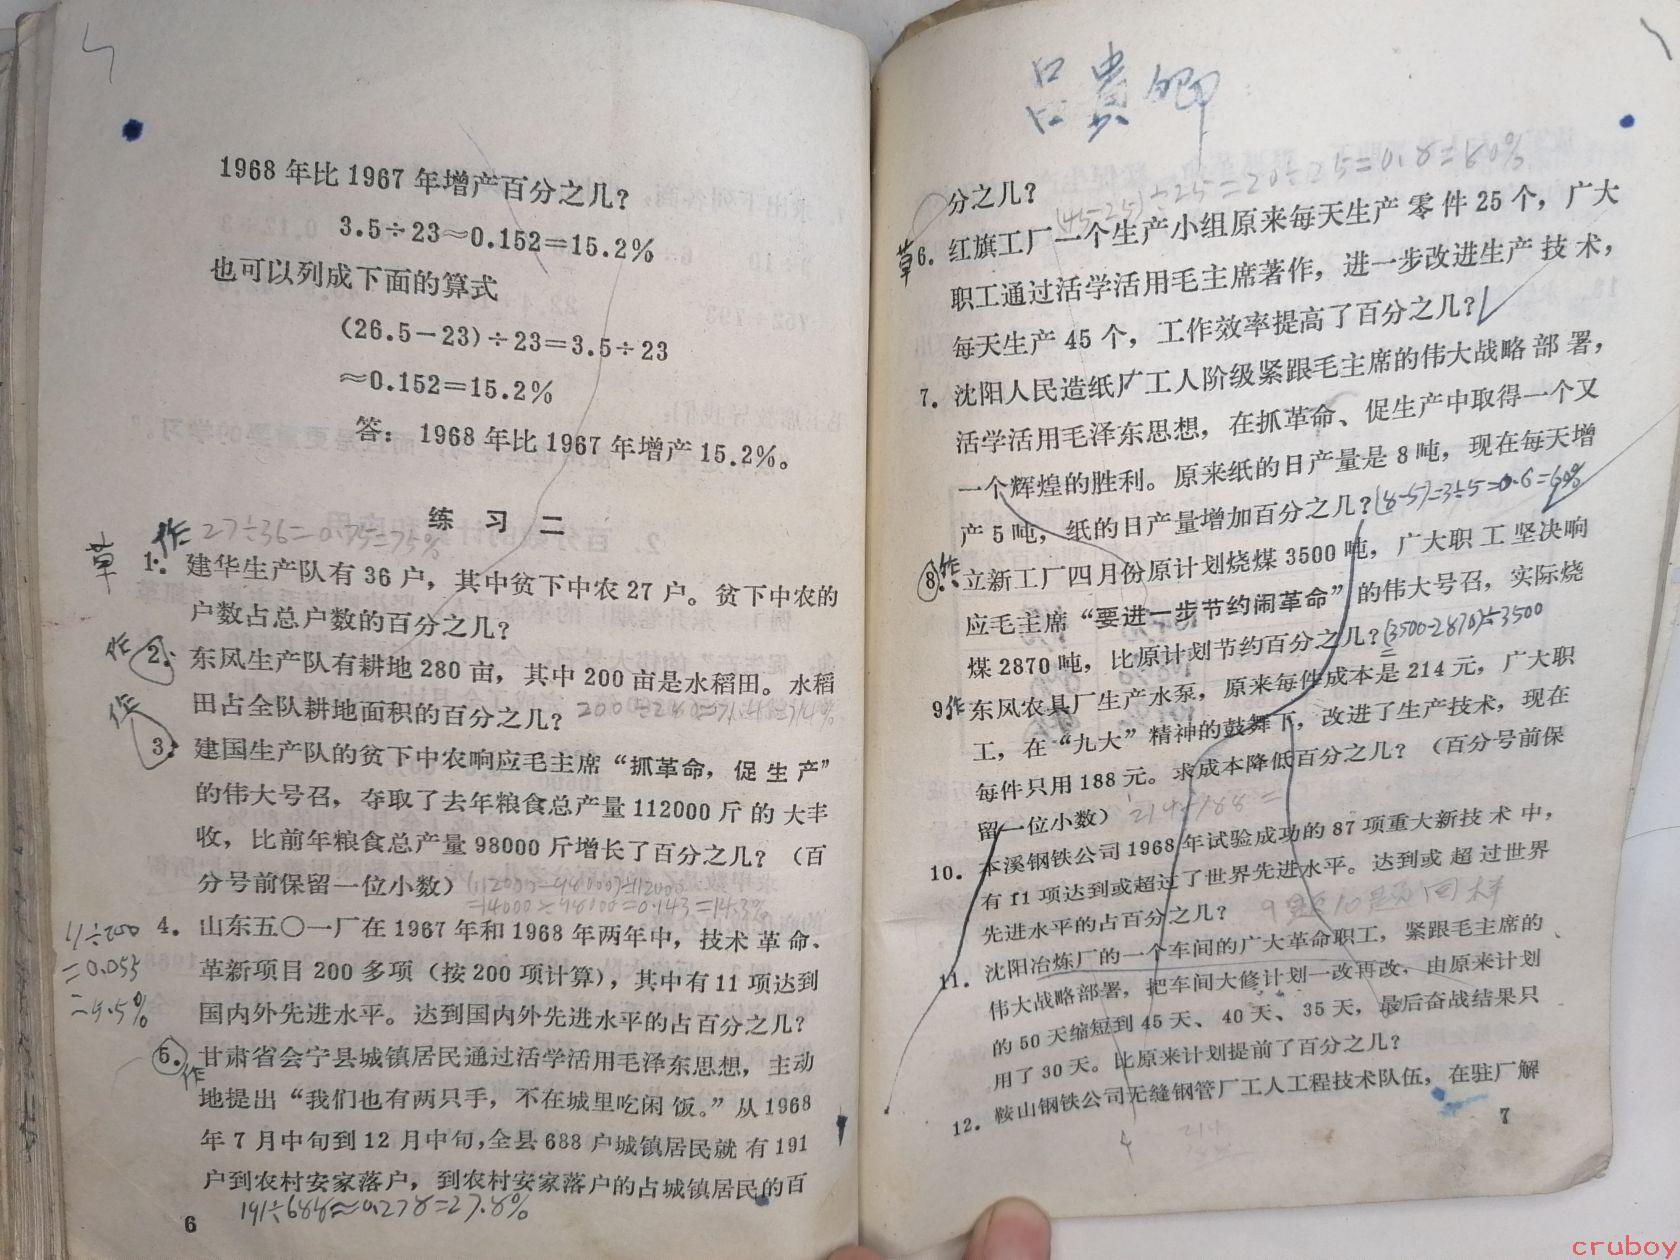 1968年比1967年增产百分之几？
3.5÷23≈0.152=15.2%
也可以列成下面的算式
(26.5－23)÷23=3.5÷23
≈0.152=15.2%
答： 1968年比1967年增产15.2%。
练 习 二
作 27÷36=0.75=75%
草 1. 建华生产队有36户，其中贫下中农27户。贫下中农的
户数占总户数的百分之几？
作 2. 东风生产队有耕地280亩，其中200亩是水稻田。水稻
田占全队耕地面积的百分之几？
作
3. 建国生产队的贫下中农响应毛主席“抓革命，促生产”
的伟大号召，夺取了去年粮食总产量112000斤的大丰
收，比前年粮食总产量98000斤增长了百分之几？（百
分号前保留一位小数）
=14000÷98000=0.143=14.3%
4. 山东五〇一厂在1967年和1968年两年中，技术革命、
革新项目200多项（按200项计算），其中有11项达到
国内外先进水平。达到国内外先进水平的占百分之几？
11÷200
=0.055
=5.5%
5. 甘肃省会宁县城镇居民通过活学活用毛泽东思想，主动
作
地提出“我们也有两只手，不在城里吃闲饭。”从1968
年7月中旬到12月中旬，全县688户城镇居民就有191
户到农村安家落户，到农村安家落户的占城镇居民的百
191÷688≈0.278=27.8%
6
(45-25)÷25=20÷25=0.8=80%
分之几？
草 6. 红旗工厂一个生产小组原来每天生产零件25个，广大
职工通过活学活用毛主席著作，进一步改进生产技术，
每天生产45个，工作效率提高了百分之几？
7. 沈阳人民造纸厂工人阶级紧跟毛主席的伟大战略部署，
活学活用毛泽东思想，在抓革命、促生产中取得一个又
一个辉煌的胜利。原来纸的日产量是8吨，现在每天增
产5吨，纸的日产量增加百分之几？(8-5)=3÷5=0.6=60%
8. 作 立新工厂四月份原计划烧煤3500吨，广大职工坚决响
应毛主席“要进一步节约闹革命”的伟大号召，实际烧
煤2870吨，比原计划节约百分之几？(3500-2870)÷3500
9. 作 东风农具厂生产水泵，原来每件成本是214元，广大职
工，在“九大”精神的鼓舞下，改进了生产技术，现在
每件只用188元。求成本降低百分之几？（百分号前保
留一位小数）
10. 本溪钢铁公司1968年试验成功的87项重大新技术中，
有11项达到或超过了世界先进水平。达到或超过世界
先进水平的占百分之几？ 9题10题同样
11. 沈阳冶炼厂的一个车间的广大革命职工，紧跟毛主席的
伟大战略部署，把车间大修计划一改再改，由原来计划
的50天缩短到45天、40天、35天，最后奋战结果只
用了30天。比原来计划提前了百分之几？
12. 鞍山钢铁公司无缝钢管厂工人工程技术队伍，在驻厂解
7
cruboy